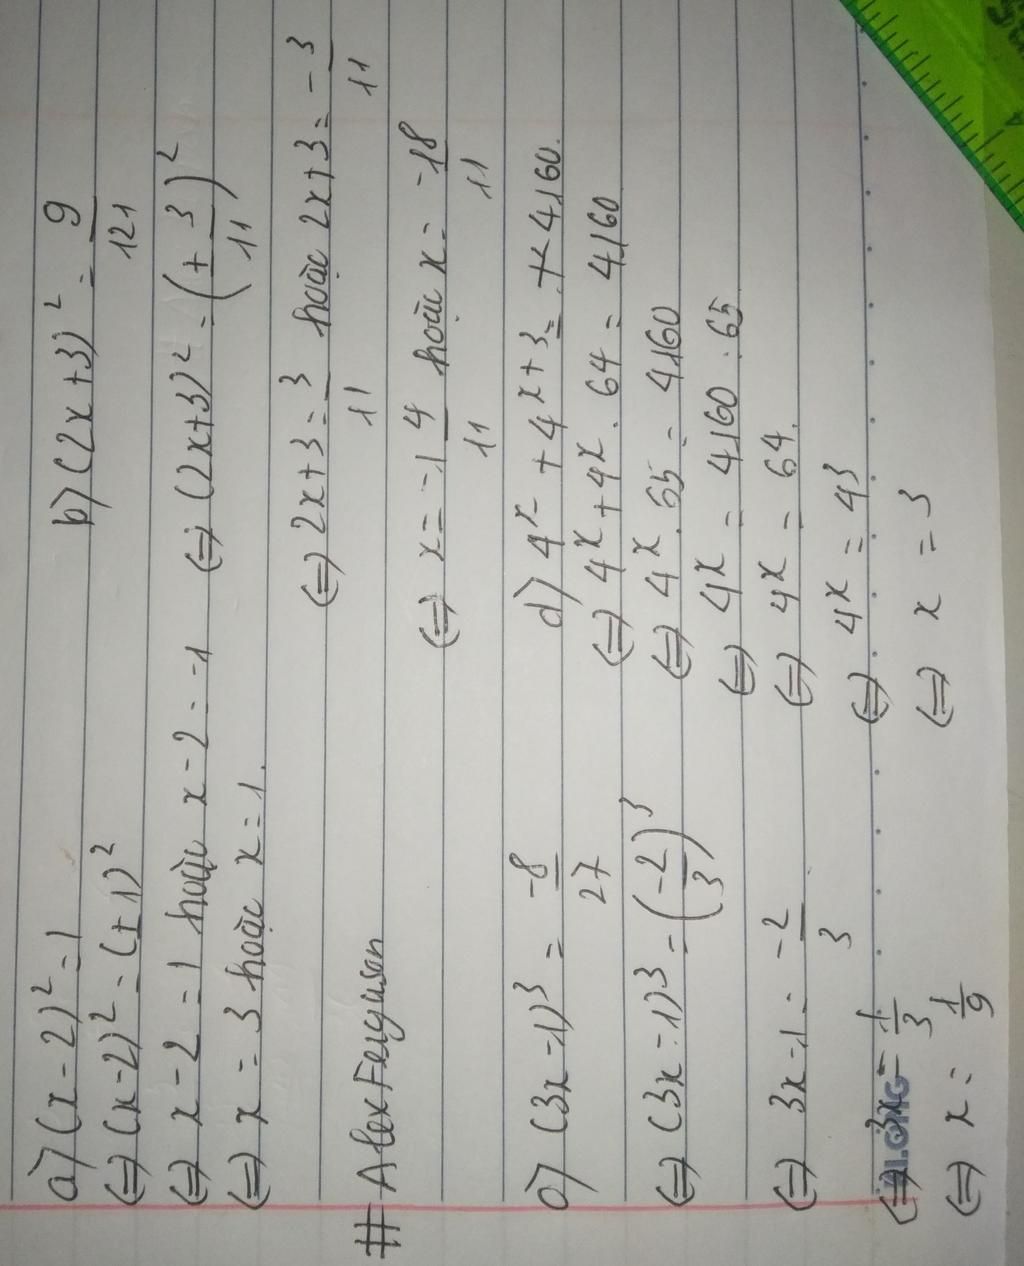 a) (x-2)² = 1
(=) (x-2)² = (±1)²
(=) x-2 = 1 hoặc x-2 = -1
(=) x = 3 hoặc x = 1.
b) (2x+3)² = 9/121
(=) (2x+3)² = (±3/11)²
(=) 2x+3 = 3/11 hoặc 2x+3 = -3/11
(=) x = -14/11 hoặc x = -18/11
# Alex Ferguson
c) (3x-1)³ = -8/27
(=) (3x-1)³ = (-2/3)³
(=) 3x-1 = -2/3
(=) 3x = 1/3
(=) x = 1/9
d) 4ˣ + 4ˣ⁺³ = 4160.
(=) 4ˣ + 4ˣ. 64 = 4160
(=) 4ˣ. 65 = 4160
(=) 4ˣ = 4160 : 65
(=) 4ˣ = 64.
(=) 4ˣ = 4³
(=) x = 3